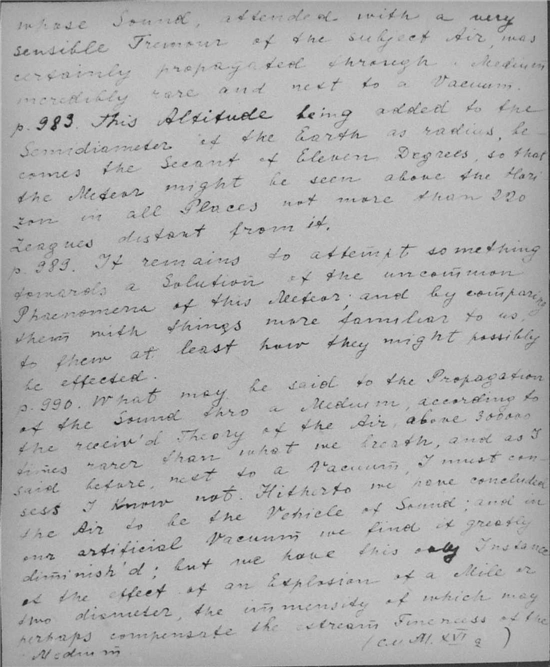 whose Sound, attended with a very
sensible Tremour of the subject Air, was
certainly propagated through a Medium
incredibly rare and next to a Vacuum.
p. 983. This Altitude being added to the
Semidiameter of the Earth as radius, be-
comes the Secant of Eleven Degrees, so that
the Meteor might be seen above the Hori-
zon in all Places not more than 220
Leagues distant from it.
p. 989. It remains to attempt something
towards a Solution of the uncommon
Phænomena of this Meteor; and by comparing
them with things more familiar to us,
to shew at least how they might possibly
be effected.
p. 990. What may be said to the Propagation
of the Sound thro a Medium, according to
the receiv'd Theory of the Air, above 300000
times rarer than what we breath, and as I
said before, next to a Vacuum, I must con-
sess I know not. Hitherto we have concluded
the Air to be the Vehicle of Sound; and in
our artificial Vacuum we find it greatly
diminish'd; but we have this only Instance
of the effect of an Explosion of a Mile or
two diameter, the immensity of which may
perhaps compensate the extream Tineness of the
Medium. ( XVI )